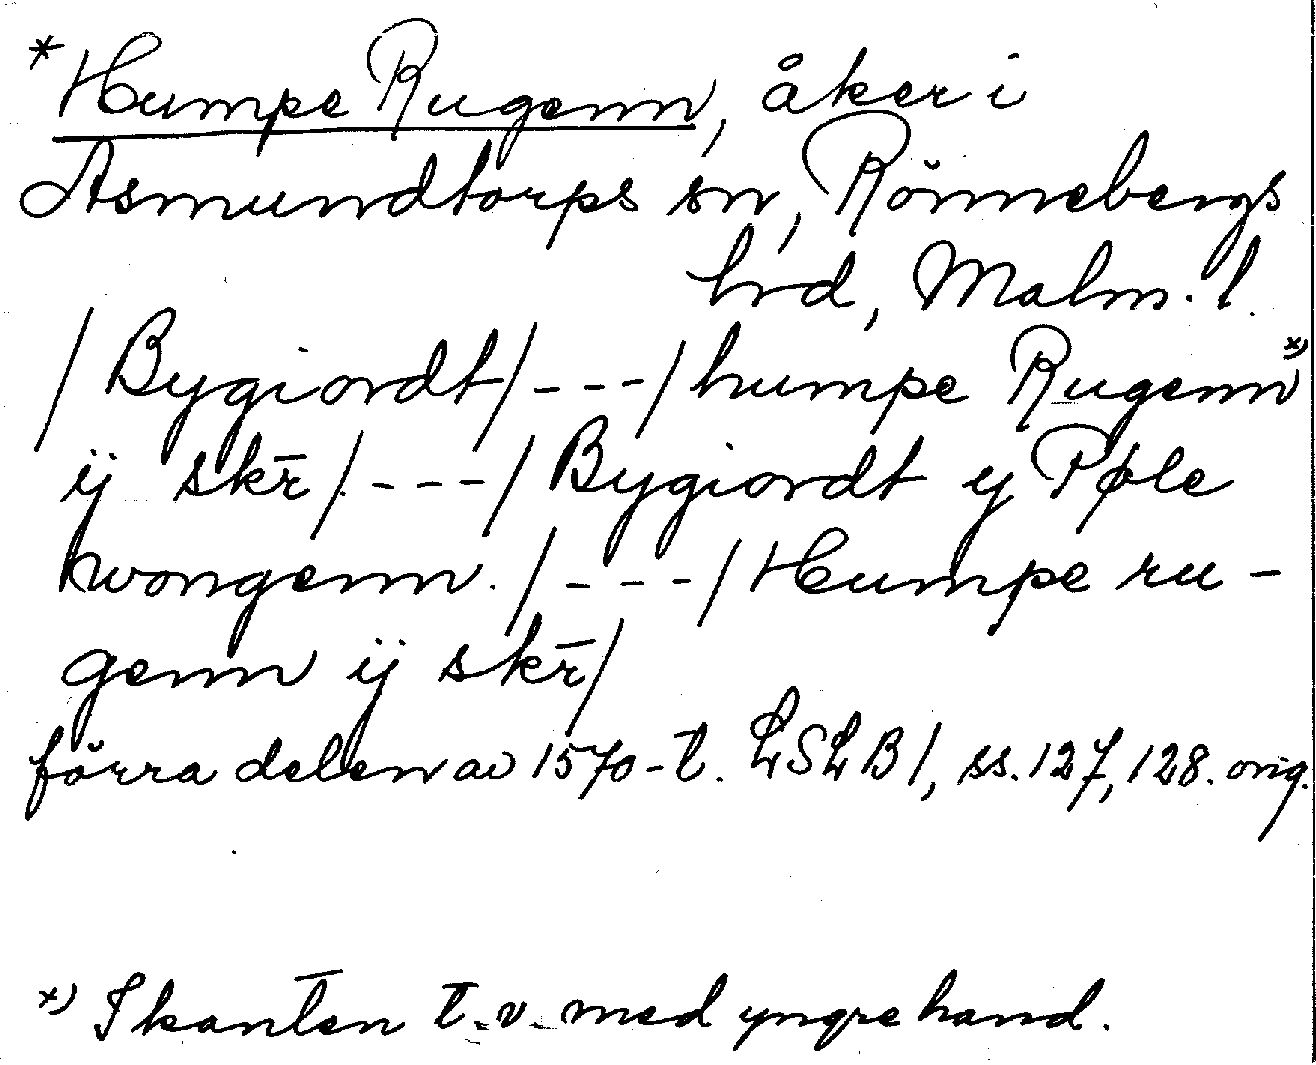 *Humpe Rugenn, åker i
Asmundtorps sn, Rönnebergs
hrd, Malm. l.
/Bygiordt/---/humpe Rugenn *)
ij skr̄/---/Bygiordt y Pøle
wongenn./---/Humpe ru-
genn ij skr̄/
förra delen av 1570-t. LSLB 1, ss. 127, 128. orig.
*) I kanten t.v. med yngre hand.